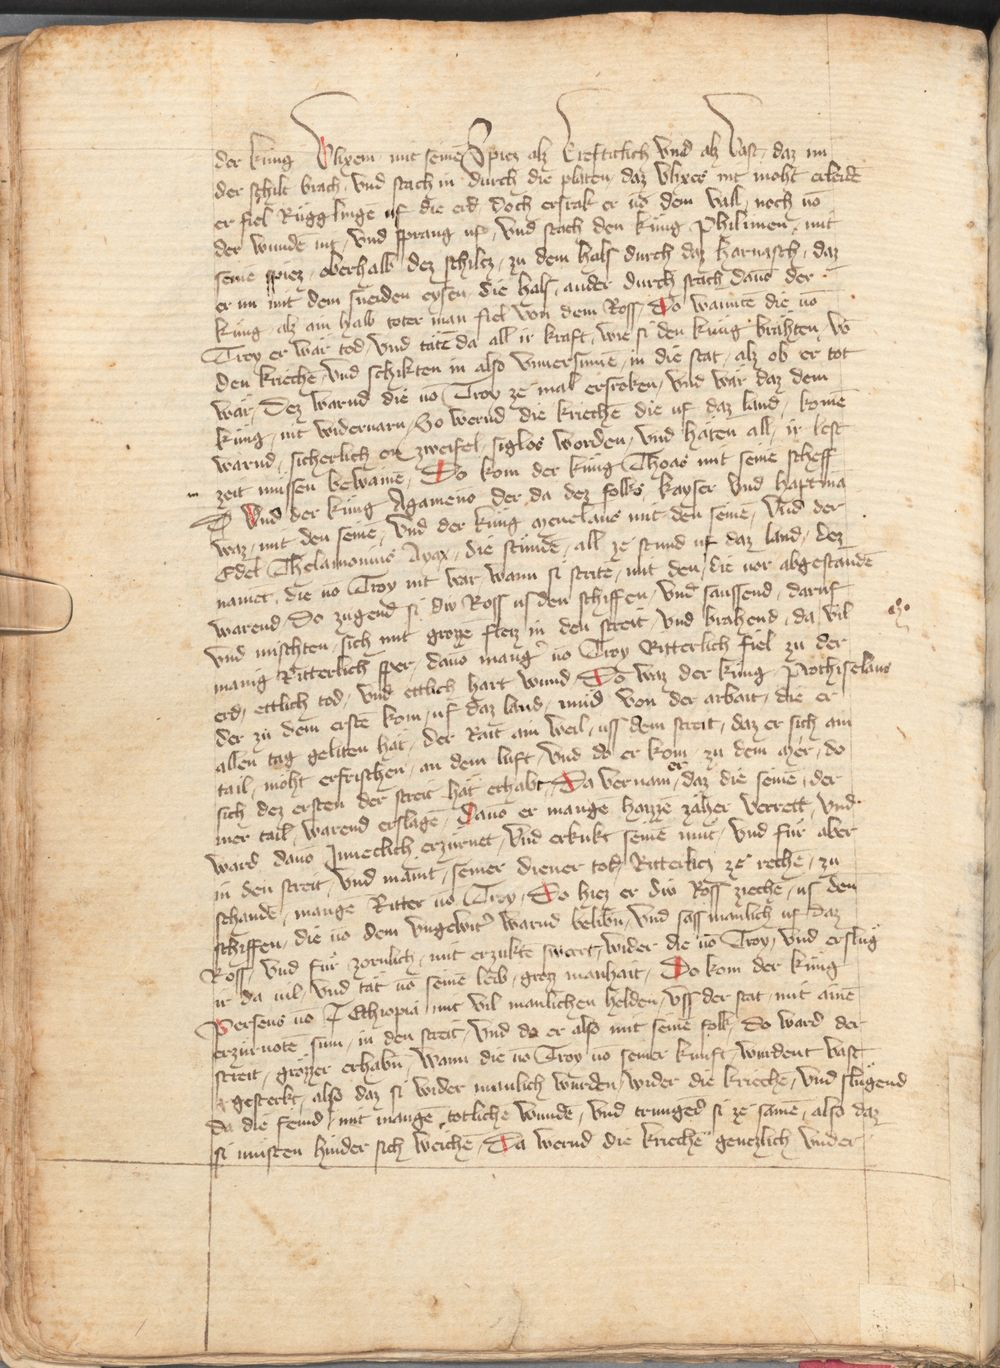 der kung Vlixem mit seinē Spiez alz kreftiklich vnd alz Vast, daz im
der schilt brach, vnd stach in durch die platen, daz vlixes nit moht erleidē
er fiel Rügglingē uf die erd, doch ersrak er uō dem vall, noch uō
der wundē nit, vnd sprang uf, vnd stach den kung philimen, mit
seinē spiez, oberhalb dez schiltz, zu dem hals durch daz harnasch, daz
er im mit dem sneiden eysen, die hals ander durch stach dauō der
kung, alz ain halb toter man fiel von dem Ross, Do wannte die uō
Troy er wär tod, vnd täte da all ir kraft, wie si den kung brähten, vō
den kriechē, vnd schikten in also vnuersunnē, in die stat, alz ob er tot
wär, Dez warnd die uō Troy ze mal ersroken, vnd wär daz dem
kung, nit widervarn, So wernd die kriechē die uf daz land, komē
warnd, sicherlich on zweifel, siglos worden, vnd häten all, ir lest
zeit müssen bewainē, Do kom der kung Thoas mit seinē scheff
Vnd der kung Agameno der da dez folks, kayser vnd haptmā
waz, mit den seinē, vnd der kung Menelaus mit den seinē, Vnd der
Edel Thelamonius Ayax, die stundē, all ze stund uf daz land, dez
namet, die uō Troy nit war wann si strite, mit den, die vor abgestandē
warend, Do zugend si diu Ross uf den schiffen, vnd saussend, daruf
vnd mischten, sich mit grozze fleiz in den streit, vnd brahend, da, vil
manig Ritterlich sper, dauō mang' uō Troy Ritterlich fiel zu der
erd, ettlich tod, vnd ettlich hart wund, Do waz der kung, prothiselaus
der zu dem erste kom, uf daz land, müd von der arbait, die er
allen tag geliten hät, der Rait ain weil, uss dem streit, daz er sich ain
tail, möht erfrischen, an dem luft, vnd do er kom, zu dem mer, do
sich dez ersten der streit hät erhabt, Da vernam er, daz die seinē, der
mer tail, warend erslagē, Dauō er mange haizze zäher verrert, vnd
ward dauō Inneclich erzürnet, vnd erkukt seinē mut, vnd für aber
in den streit, vnd maint, seiner diener tod, Ritterlich ze rechē, zu
schande, mange Ritter uō Troy, Do hiez er diu Ross ziechē, uf den
schiffen, die uō dem vngewit' warnd belibn, vnd sass manlich uf daz
Ross, vnd für zornlich, mit erzukte swert, wider die uō Troy, vnd erslug
ir da uil, vnd tät uō seinē leib, groz manhait, Do kom der kung
perseus uō Ethiopia mit vil manlichen helden, vss der stat, mit ainē
erzürnote sinn, in den streit, vnd do er also mit seinē folk, Do ward der
streit, grözzer erhabn, Wann die uō Troy uō seiner kunft, wurdent vast
gesterkt, also daz si wider manlich wurden, wider die kriechē, vnd slugend
da die feind, mit mangē totliche wundē, vnd trunged si ze samē, also daz
si müsten hinder sich weichē, Da wernd die krieche genczlich vnder